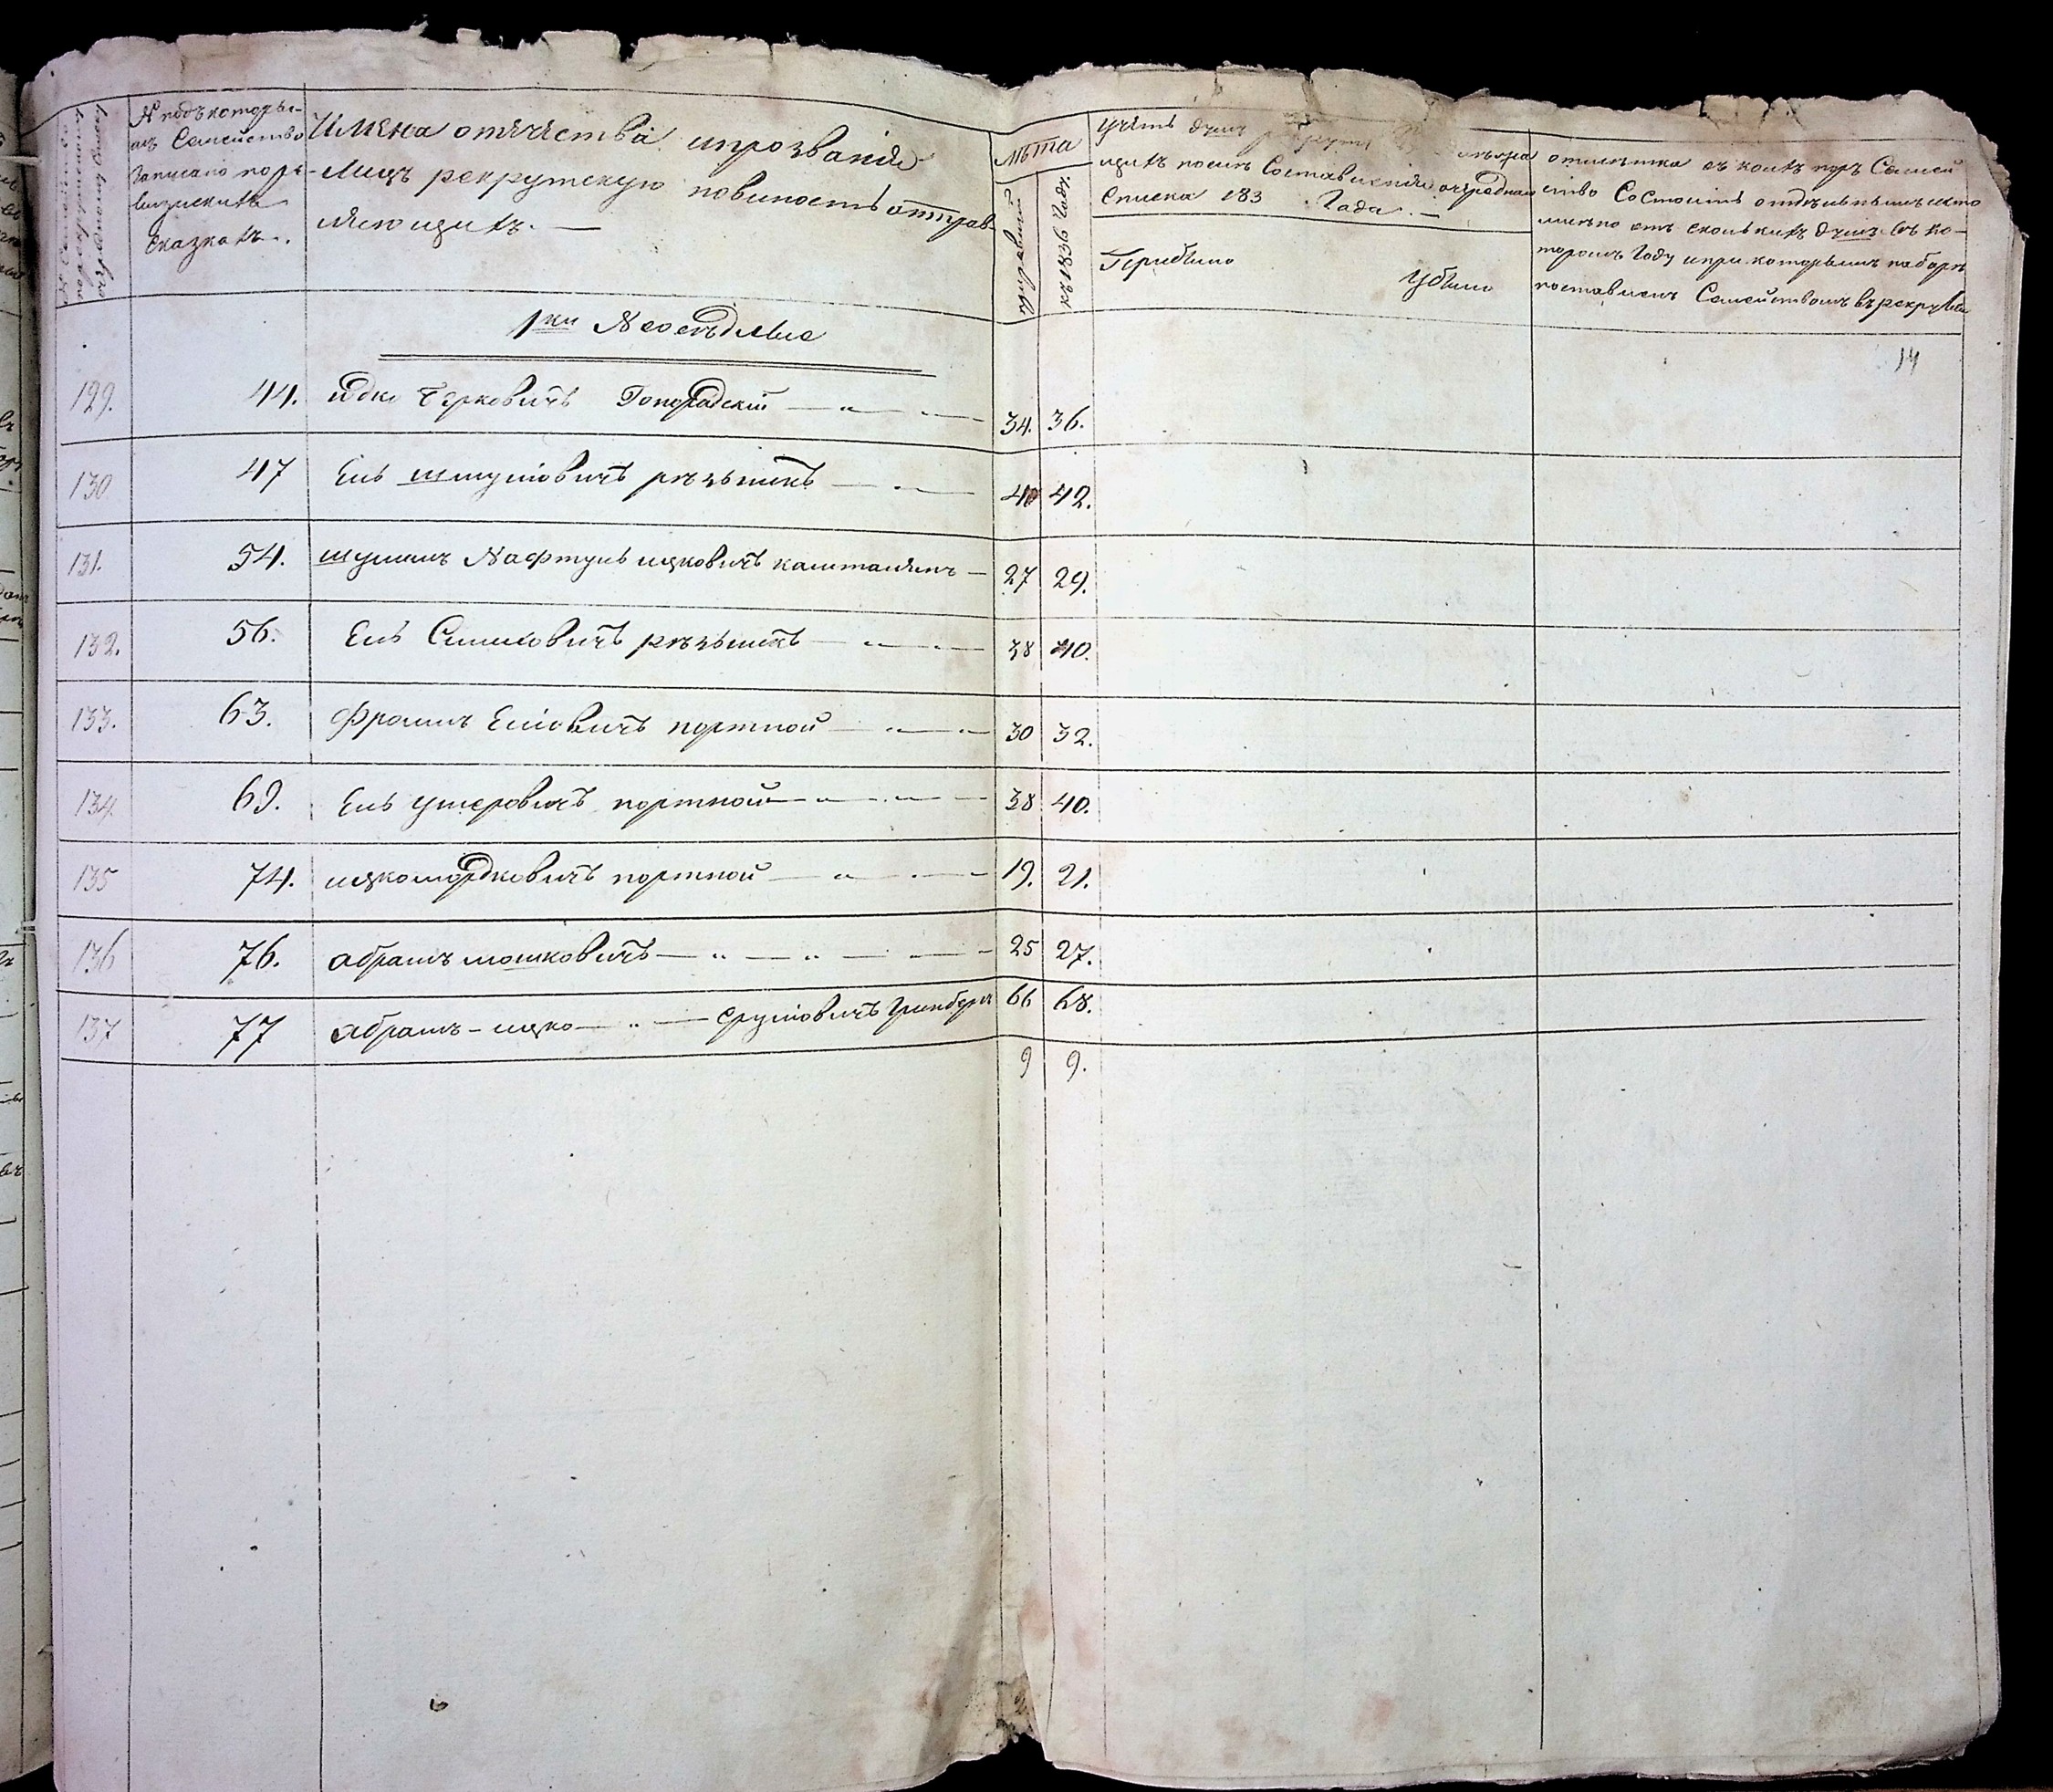 № подъ которы-
мъ Семейство
Записано поре-
визскихъ
сказкахъ.
Имена отечества ипрозванiя
Лицъ рекрутскую повиность отправ-
ляющихъ. —
Лѣта
поревизiи
къ 1836 году.
Учетъ душъ
щихъ послѣ Составленiя очереднаго
Списка 183 Года. —
Прибыло
Убыло
отмѣтка съ коихъ поръ Семей
ство Состоитъ отдѣльнымъ икто
имянно отъ сколькихъ душъ въ ко-
торомъ Году ипри которомъ наборѣ
поставленъ Семействомъ врекруты
14
1ки Неосѣдлые
129. 44. Юдко Берковичъ Гоноградскiй — „ — 34. 36.
130 47 Ель Шмулiовичъ рѣзникъ — „ — 40 42.
131. 54. Шулимъ Нафтуль ицковичъ каштанянъ — 27 29.
132. 56. Ель Симховичъ рѣзникъ — „ — 38 40.
133. 63. Фроимъ Елiовичъ портной — „ — „ — 30 32.
134. 69. Ель ушеровичъ портной — „ — „ — 38 40.
135 74. ицко мордковичъ портной — „ — 19. 21.
136 76. абрамъ мошковичъ — „ — „ — 25 27.
137 77 абрамъ-ицко — „ — Срулiовичъ Гринберг 66 68.
9 9.